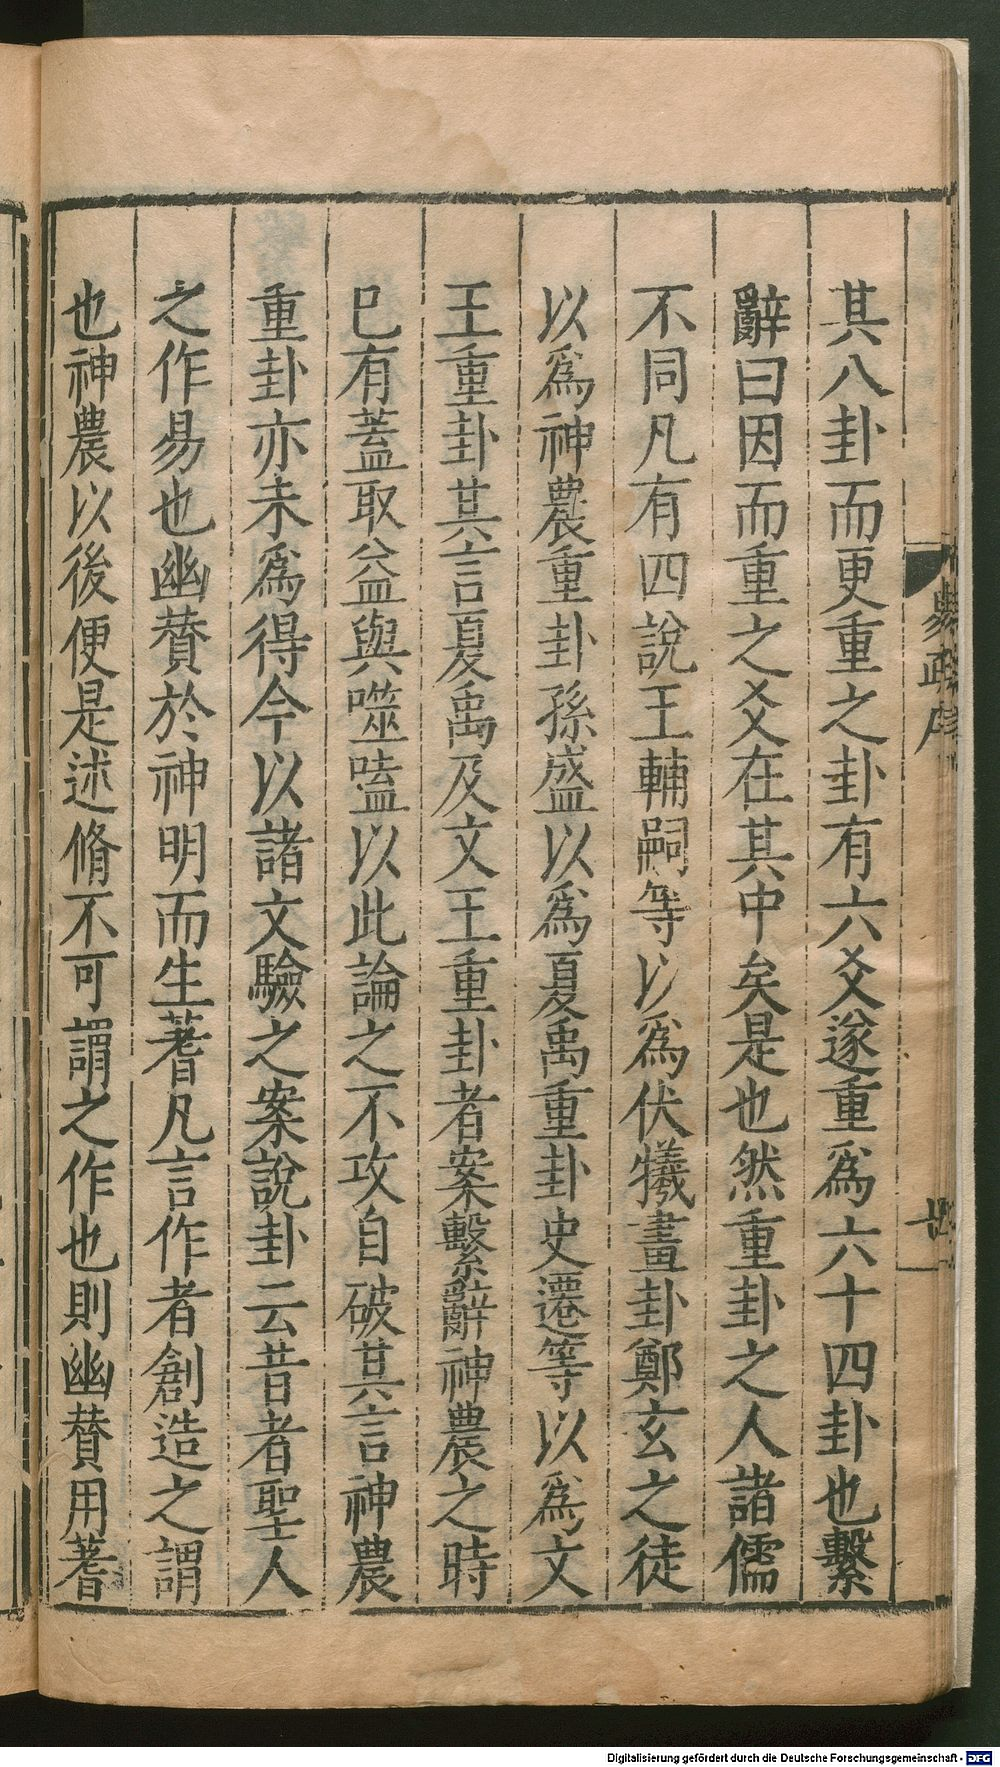 其八卦而更重之卦有六爻遂重爲六十四卦也繫
辭曰因而重之爻在其中矣是也然重卦之人諸儒
不同凡有四說王輔嗣等以爲伏犧畫卦鄭玄之徒
以爲神農重卦孫盛以爲夏禹重卦史遷等以爲文
王重卦其言夏禹及文王重卦者案繫辭神農之時
已有蓋取益與噬嗑以此論之不攻自破其言神農
重卦亦未爲得今以諸文驗之案說卦云昔者聖人
之作易也幽賛於神明而生蓍凡言作者創造之謂
也神農以後便是述脩不可謂之作也則幽賛用蓍
Digitalisierung gefördert durch die Deutsche Forschungsgemeinschaft - DFG